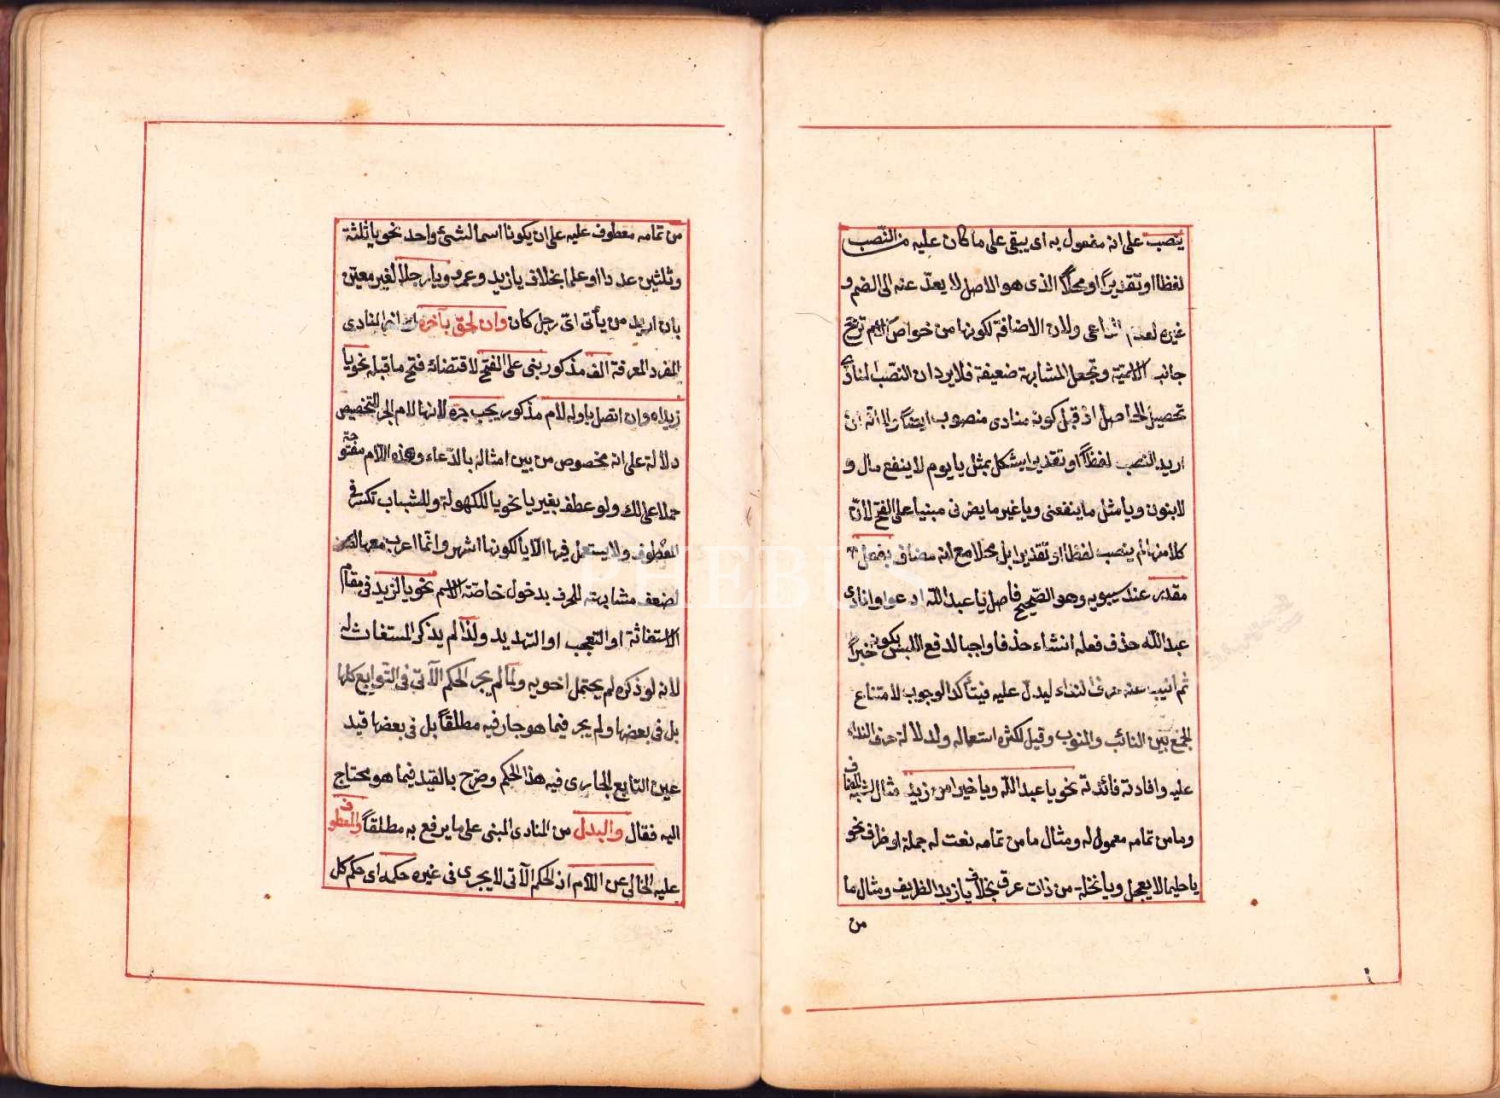 ينصب على انه مفعول به اى يبقى على ما كان عليه من النصب
لفظا او تقديرًا او محلًا الذى هو الاصل لا يعدّ عنه الى الضم و
غيره لعدم الداعى ولان الاضافة لكونها من خواص الاسم ترجح
جانب الاسمية وتجعل المشابهة ضعيفة فلا يرد ان النصب المنادى
تحصيل الحاصل اذ قبل كونه منادى منصوب ايتفاقا لا انه ان
اريد النصب لفظًا او تقديرا يشكل بمثل يا يوم لا ينفع مال و
لا بنون ويا مثل ما ينفعنى ويا غير ما يضرنى مبنيا على الفتح لانّ
كلا منها لم ينصب لفظا او تقديرا بل محلا مع انه مضاف بفعل
مقدر عند سيبويه وهو الصحيح فاصل يا عبد اللّه ادعو او انادى
عبد اللّه حذف فعله انشاء حذفا واجبا لدفع اللبس بكونه خبرًا
ثم انيب عنه حرف النداء ليدلّ عليه فيتأكد الوجوب لامتناع
الجمع بين النائب والمنوب وقيل لكثرة استعماله ولدلالة حرف النداء
عليه وافادته فائدته نحو يا عبد اللّه ويا خيرا من زيد مثال لشبيه المضاف
وما من تمامه معمول له ومثال ما من تمامه نعت له جملة او ظرف نحو
يا حليما لا يعجل ويا نخلة من ذات عرق بخلاف يا زيد الظريف ومثال ما
من
من تمامه معطوف عليه على ان يكونا اسما لشئ واحد نحو يا ثلثة
وثلثين عددا او علما بخلاف يا زيد وعمرو ويا رجلا لغير معين
بان اريد من يأتى اىّ رجل كان وان لحق بآخره اى اخر المنادى
المفرد المعرفة الف مذكور بنى على الفتح لاقتضائه فتح ما قبله نحو يا
زيداه وان اتصل باوله لام مذكور يجب جره لانها لام الجر التخصيص
دلالة على انه مخصوص من بين امثاله بالدّعاء وهذه اللام مفتوحة
حملا على لك ولو عطف بغير يا نحو يا للكهولة وللشباب تكسر فى
المعطوف ولا يستعمل فيها الّا يا لكونها اشهر وانّما اعرب معها
لضعف مشابهته للحرف بدخول خاصّة الاسم نحو يا لزيد فى مقام
الاستغاثة او التعجب او التهديد ولذا لم يذكر المستغاث له
لانه لو ذكره لم يحتمل اخويه ولمّا لم يجر الحكم الآتى فى التوابع كلها
بل فى بعضها ولم يجر فيما هو جار فيه مطلقًا بل فى بعضها قيد
عين التابع الجارى فيه هذا الحكم وصرّح بالقيد فيما هو محتاج
اليه فقال والبدل من المنادى المبنى على ما يرفع به مطلقًا والمعطوف
عليه الخالى عن اللام اذ الحكم الآتى لا يجرى فى غيره حكمه اى حكم كل